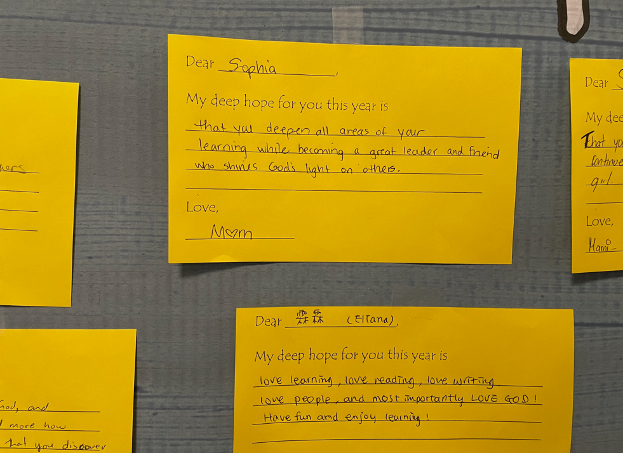 Dear Sophia,
My deep hope for you this year is
that you deepen all areas of your
learning while becoming a great leader and friend
who shines God's light on others.
Love,
Mom
Dear
My dee
That yo
continue
girl
Love,
Mami
Dear (Eliana),
My deep hope for you this year is
love learning, love reading, love writing
love people, and most importantly LOVE GOD!
Have fun and enjoy learning!
and
more how
that you discover